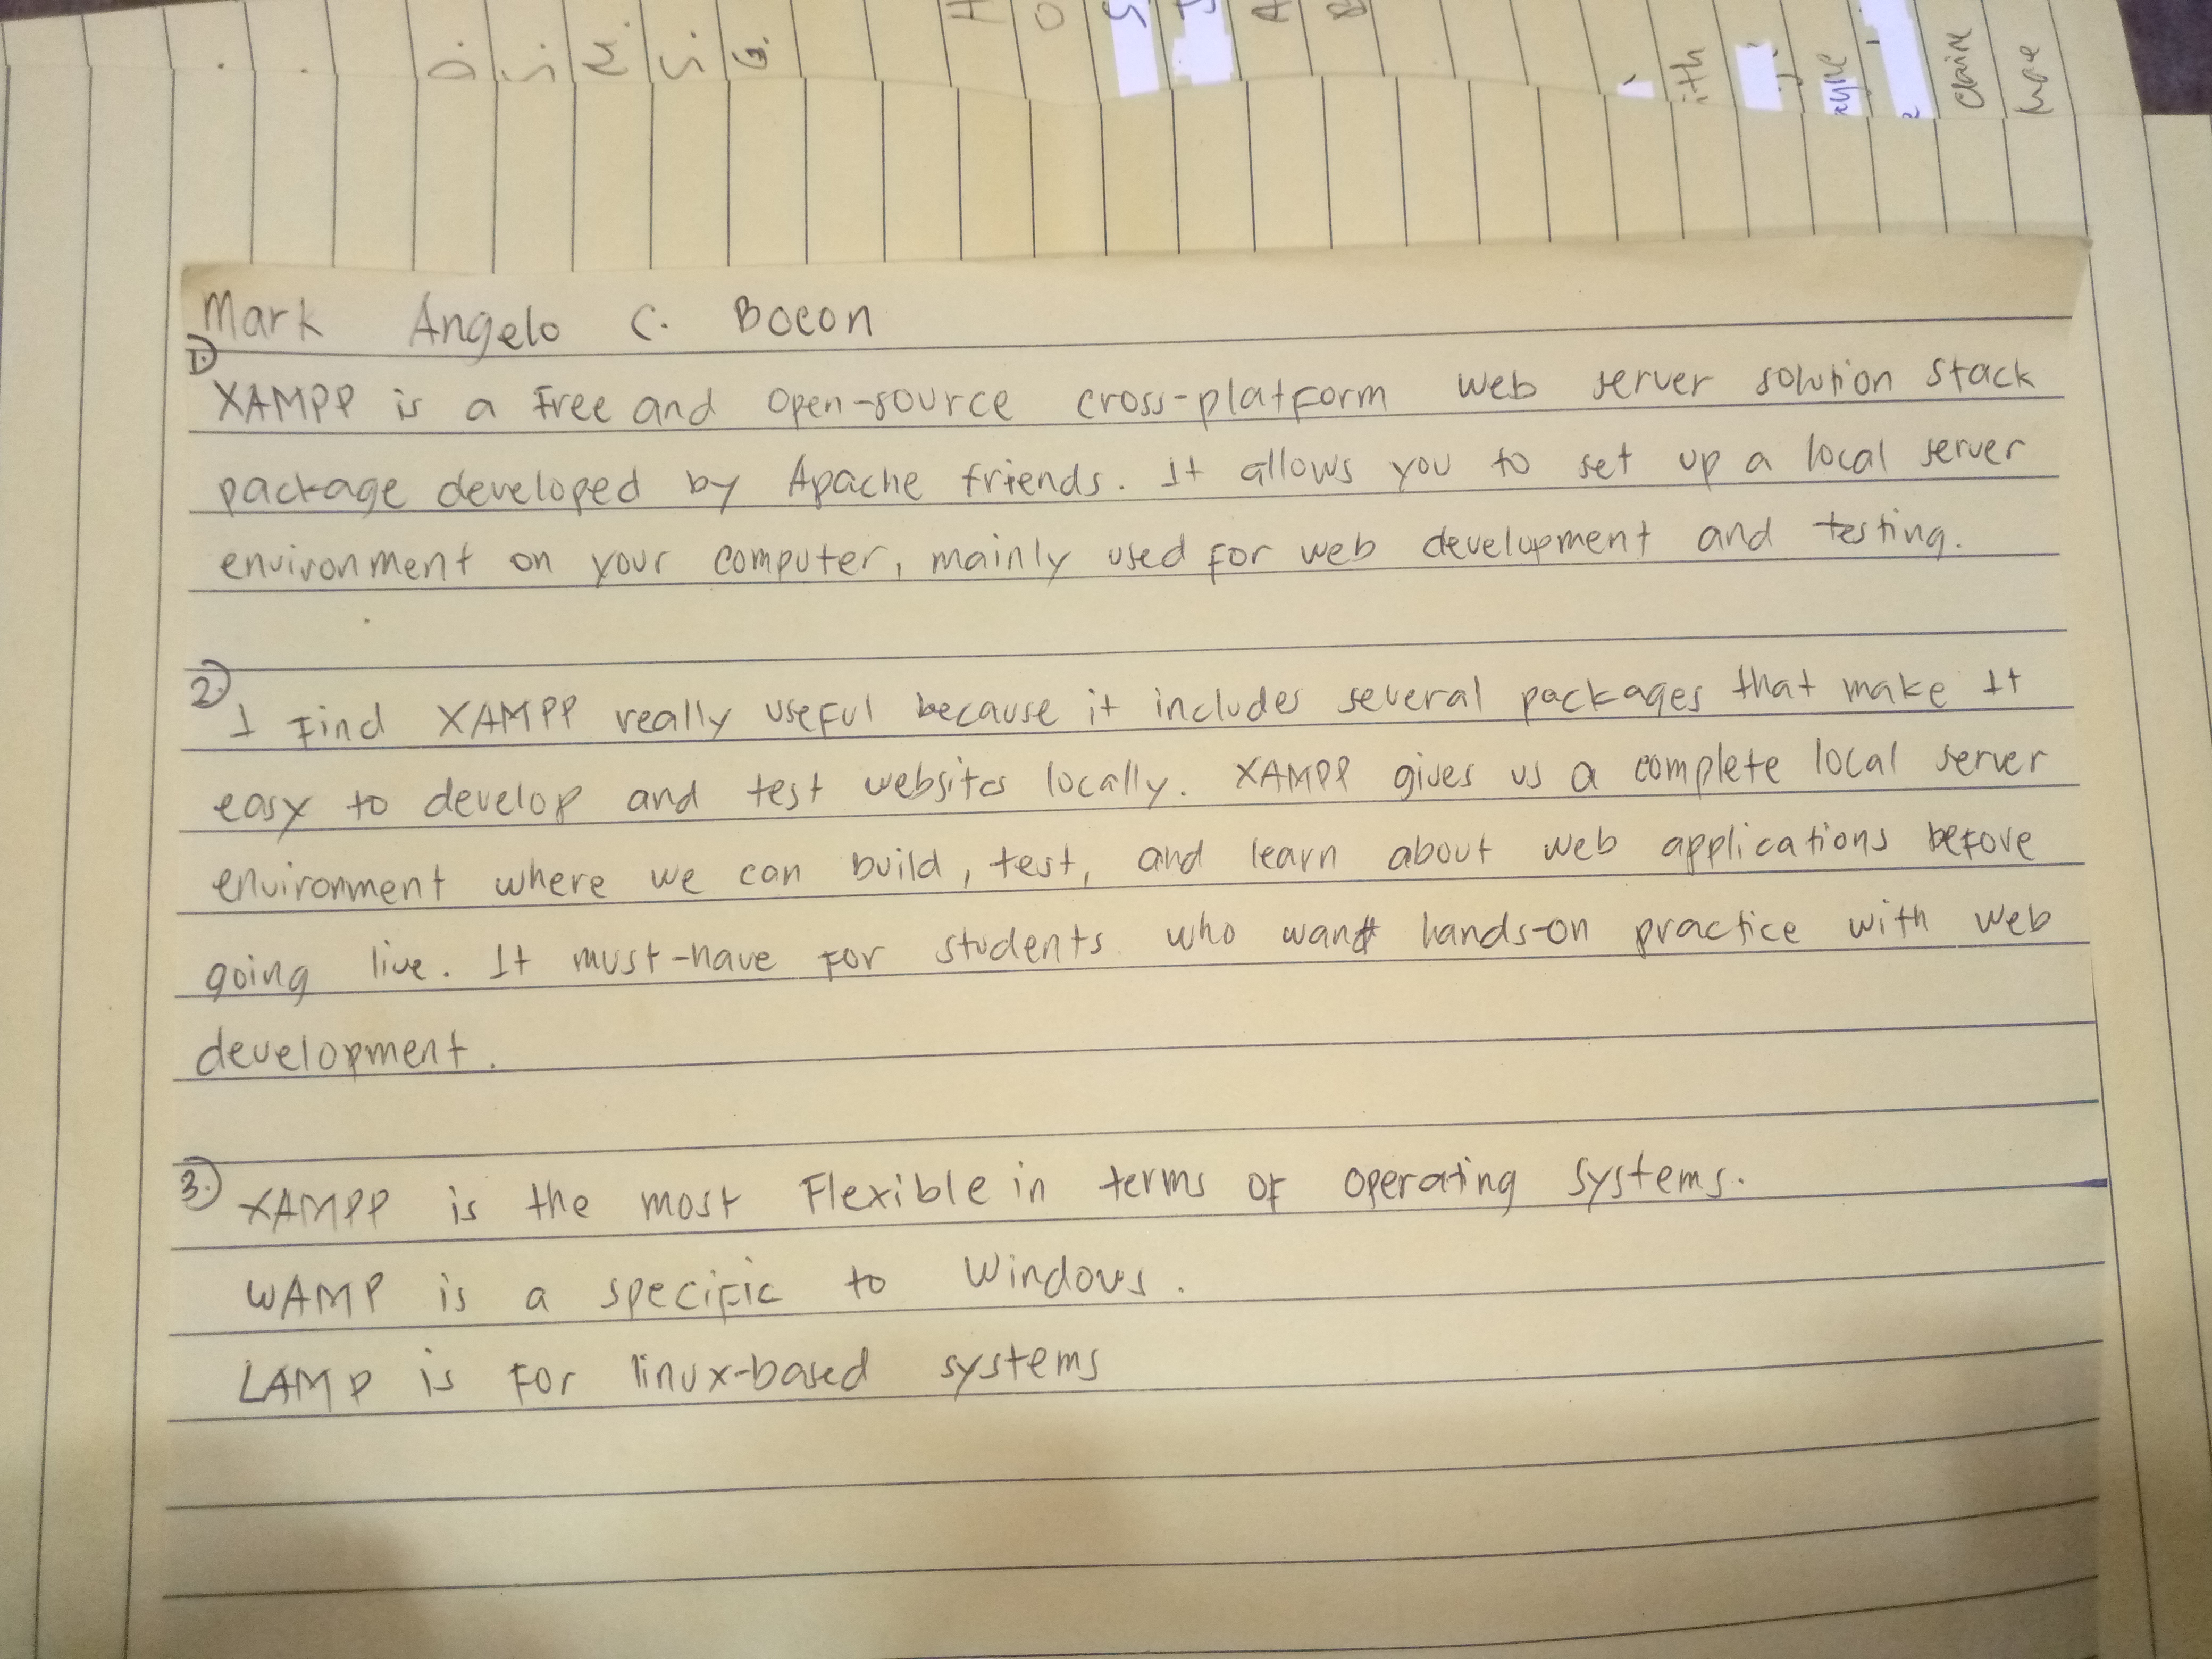 D. S. M. S. G. H O S J A B
ith
ayne
Claire
Mae
Mark Angelo C. Bocon
1.
XAMPP is a Free and open-source cross-platform web server solution stack
package developed by Apache friends. It allows you to set up a local server
environment on your computer, mainly used for web development and testing.
2.
I Find XAMPP really useful because it includes several packages that make it
easy to develop and test websites locally. XAMPP gives us a complete local server
environment where we can build, test, and learn about web applications before
going live. It must-have for students who want hands-on practice with web
development.
3. XAMPP is the most Flexible in terms of operating systems.
WAMP is a specific to Windows.
LAMP is for linux-based systems